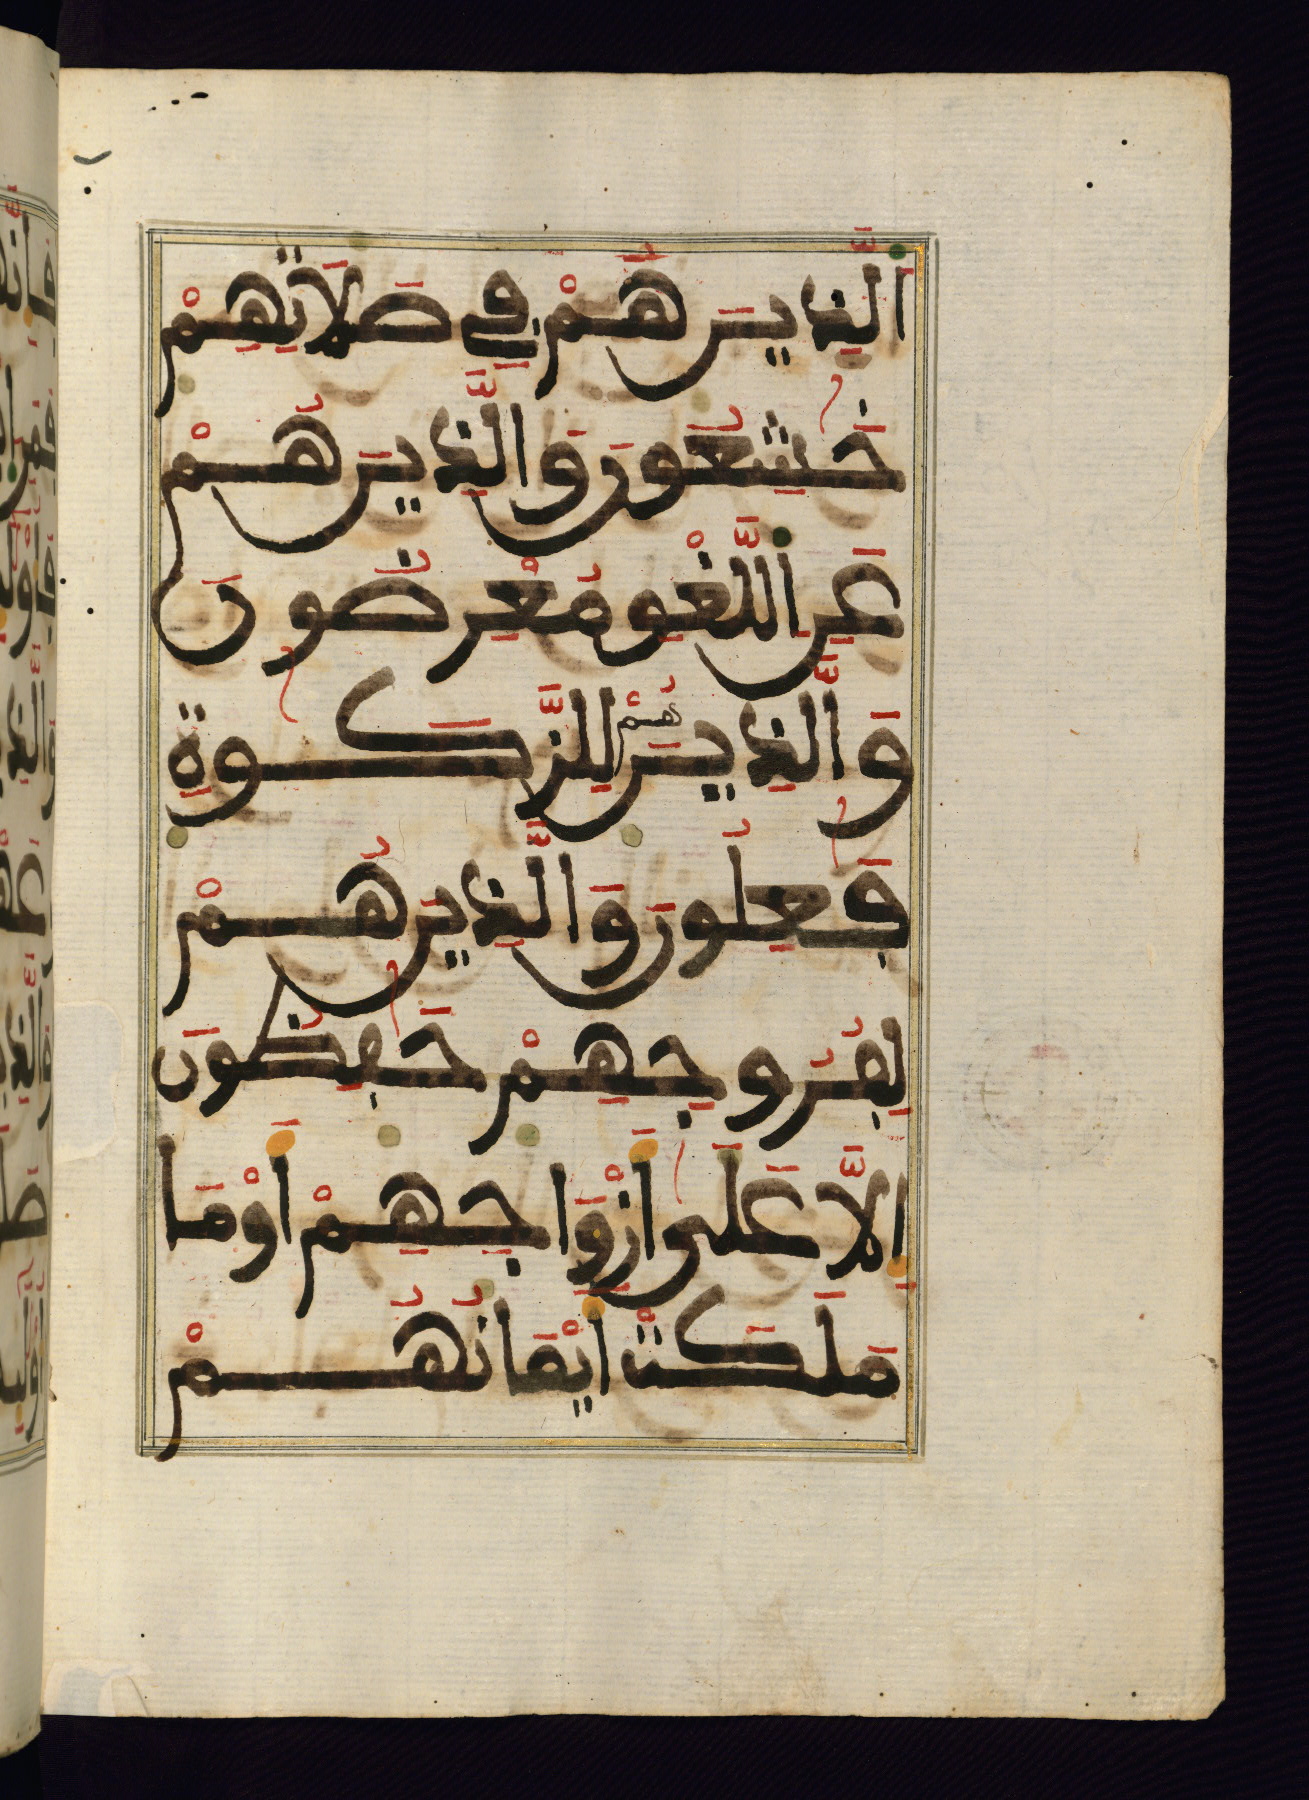 الَّذِينَ هُمْ فِي صَلَاتِهِمْ
خَٰشِعُونَ وَالَّذِينَ هُمْ
عَنِ اللَّغْوِ مُعْرِضُونَ
وَالَّذِينَ هُمْ لِلزَّكَوٰةِ
فَٰعِلُونَ وَالَّذِينَ هُمْ
لِفُرُوجِهِمْ حَٰفِظُونَ
إِلَّا عَلَىٰ أَزْوَاجِهِمْ أَوْ مَا
مَلَكَتْ أَيْمَانُهُمْ